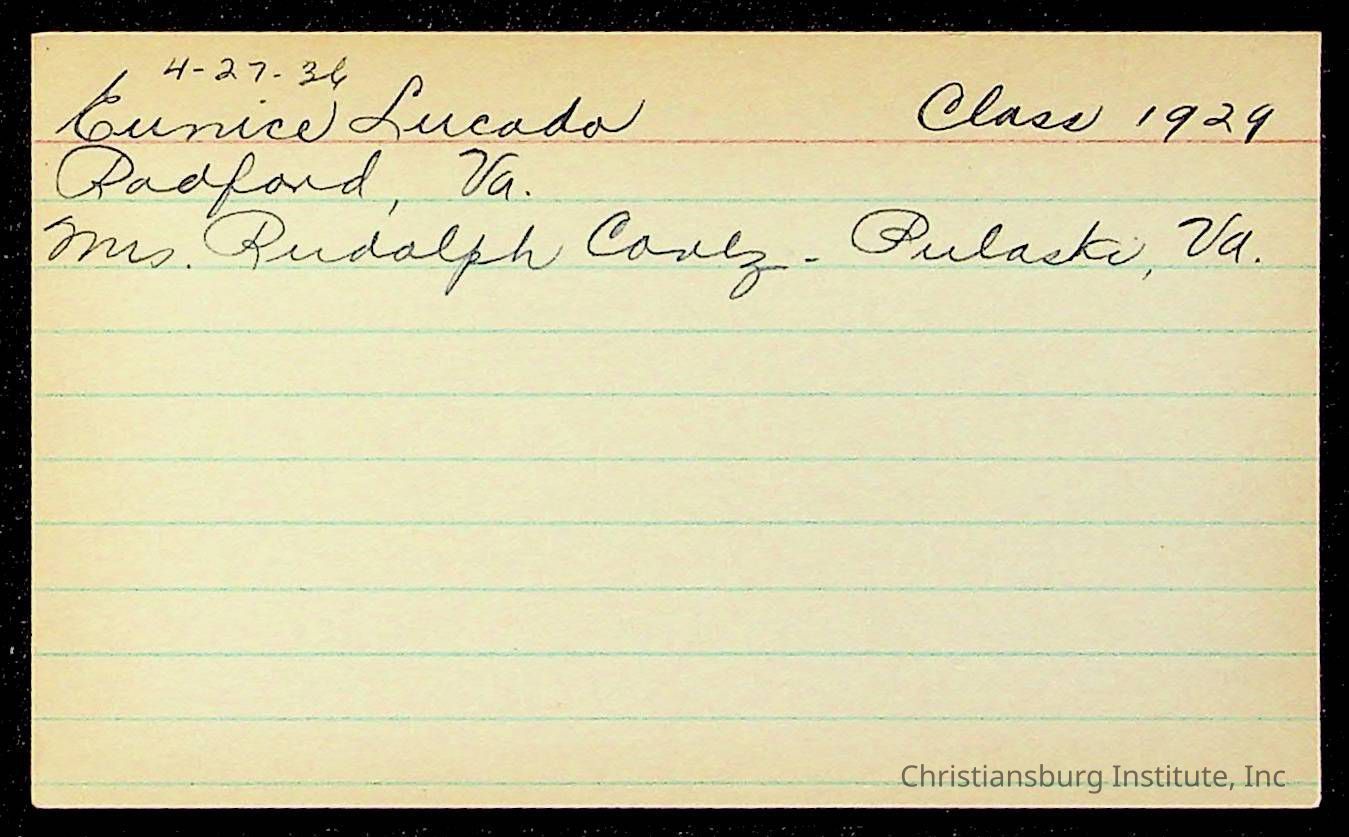 4-27-36
Eunice Lucado Class 1929
Radford, Va.
Mrs. Rudolph - Pulaski, Va.
Christiansburg Institute, Inc